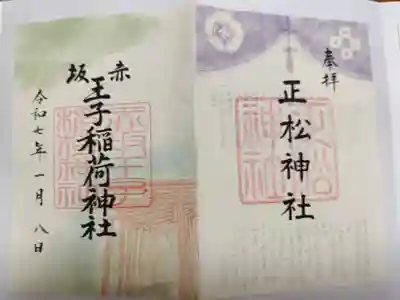 奉拝
正松神社
赤坂
王子稲荷神社
令和七年一月八日